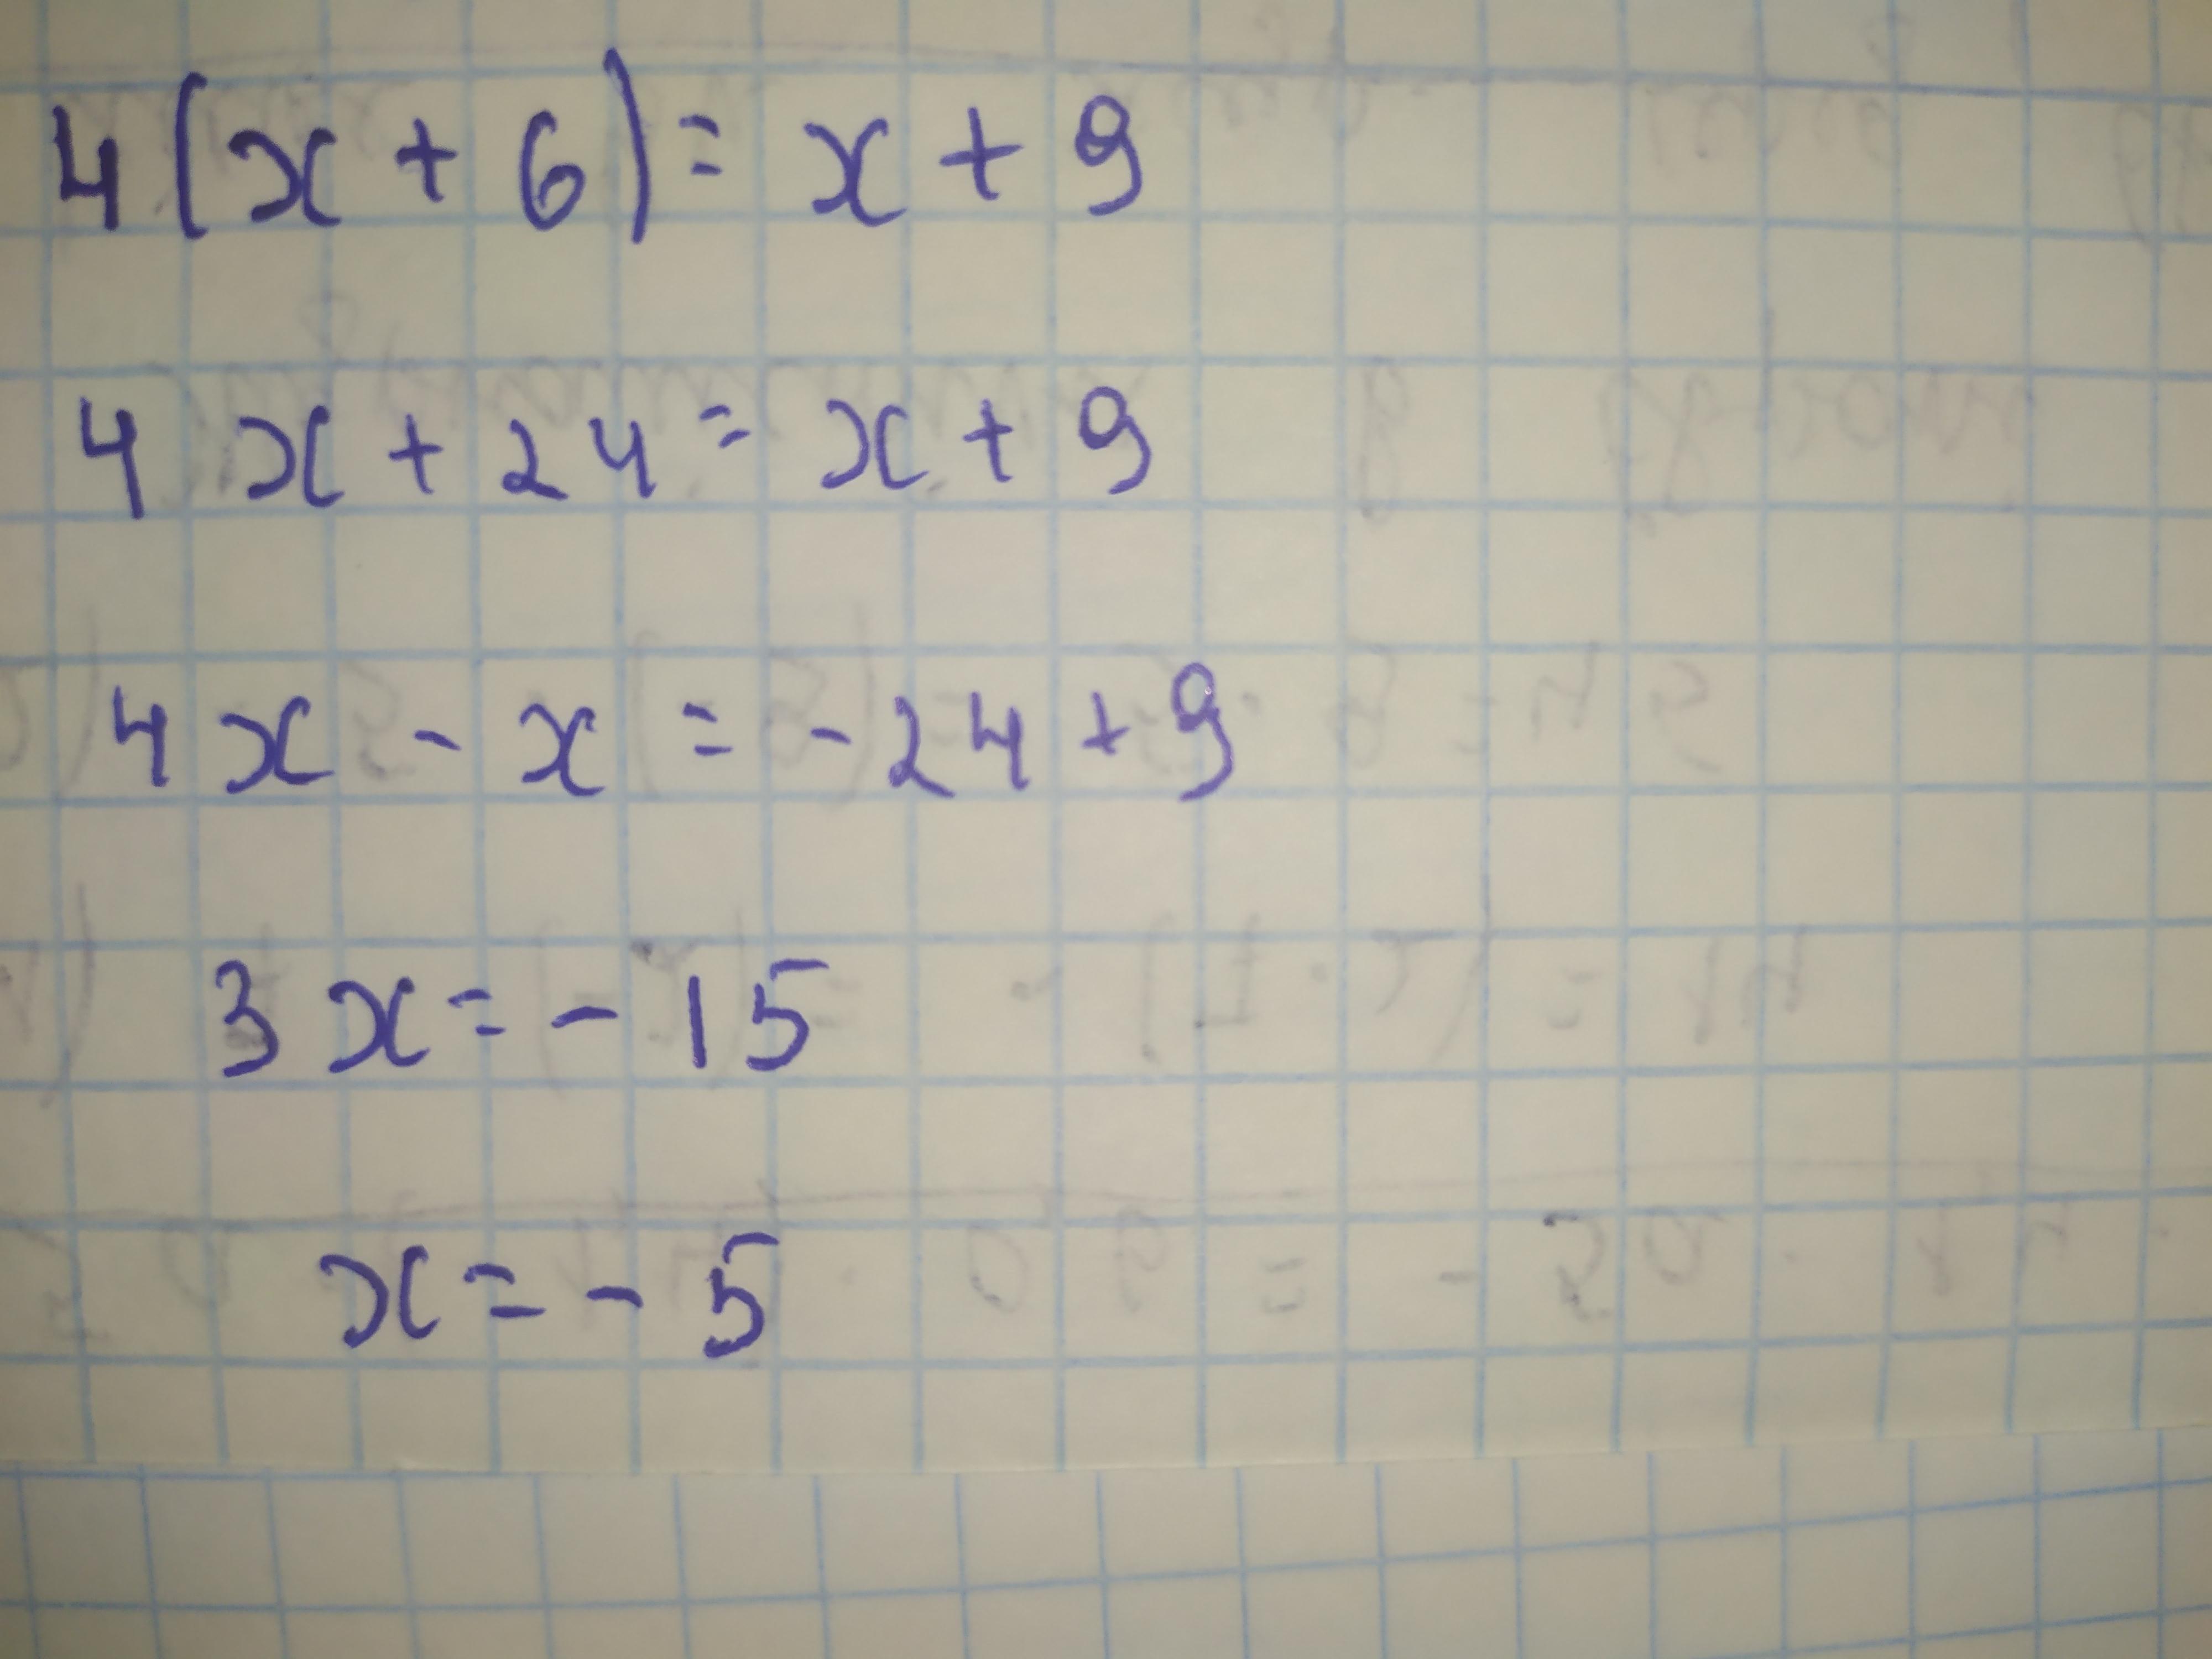 4(x + 6) = x + 9
4x + 24 = x + 9
4x - x = -24 + 9
3x = -15
x = -5